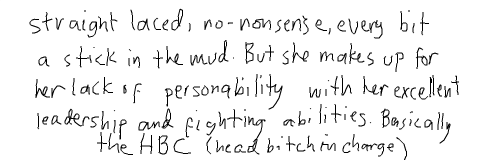 straight laced, no-nonsense, every bit
a stick in the mud. But she makes up for
her lack of personability with her excellent
leadership and fighting abilities. Basically
the HBC (head bitch in charge)